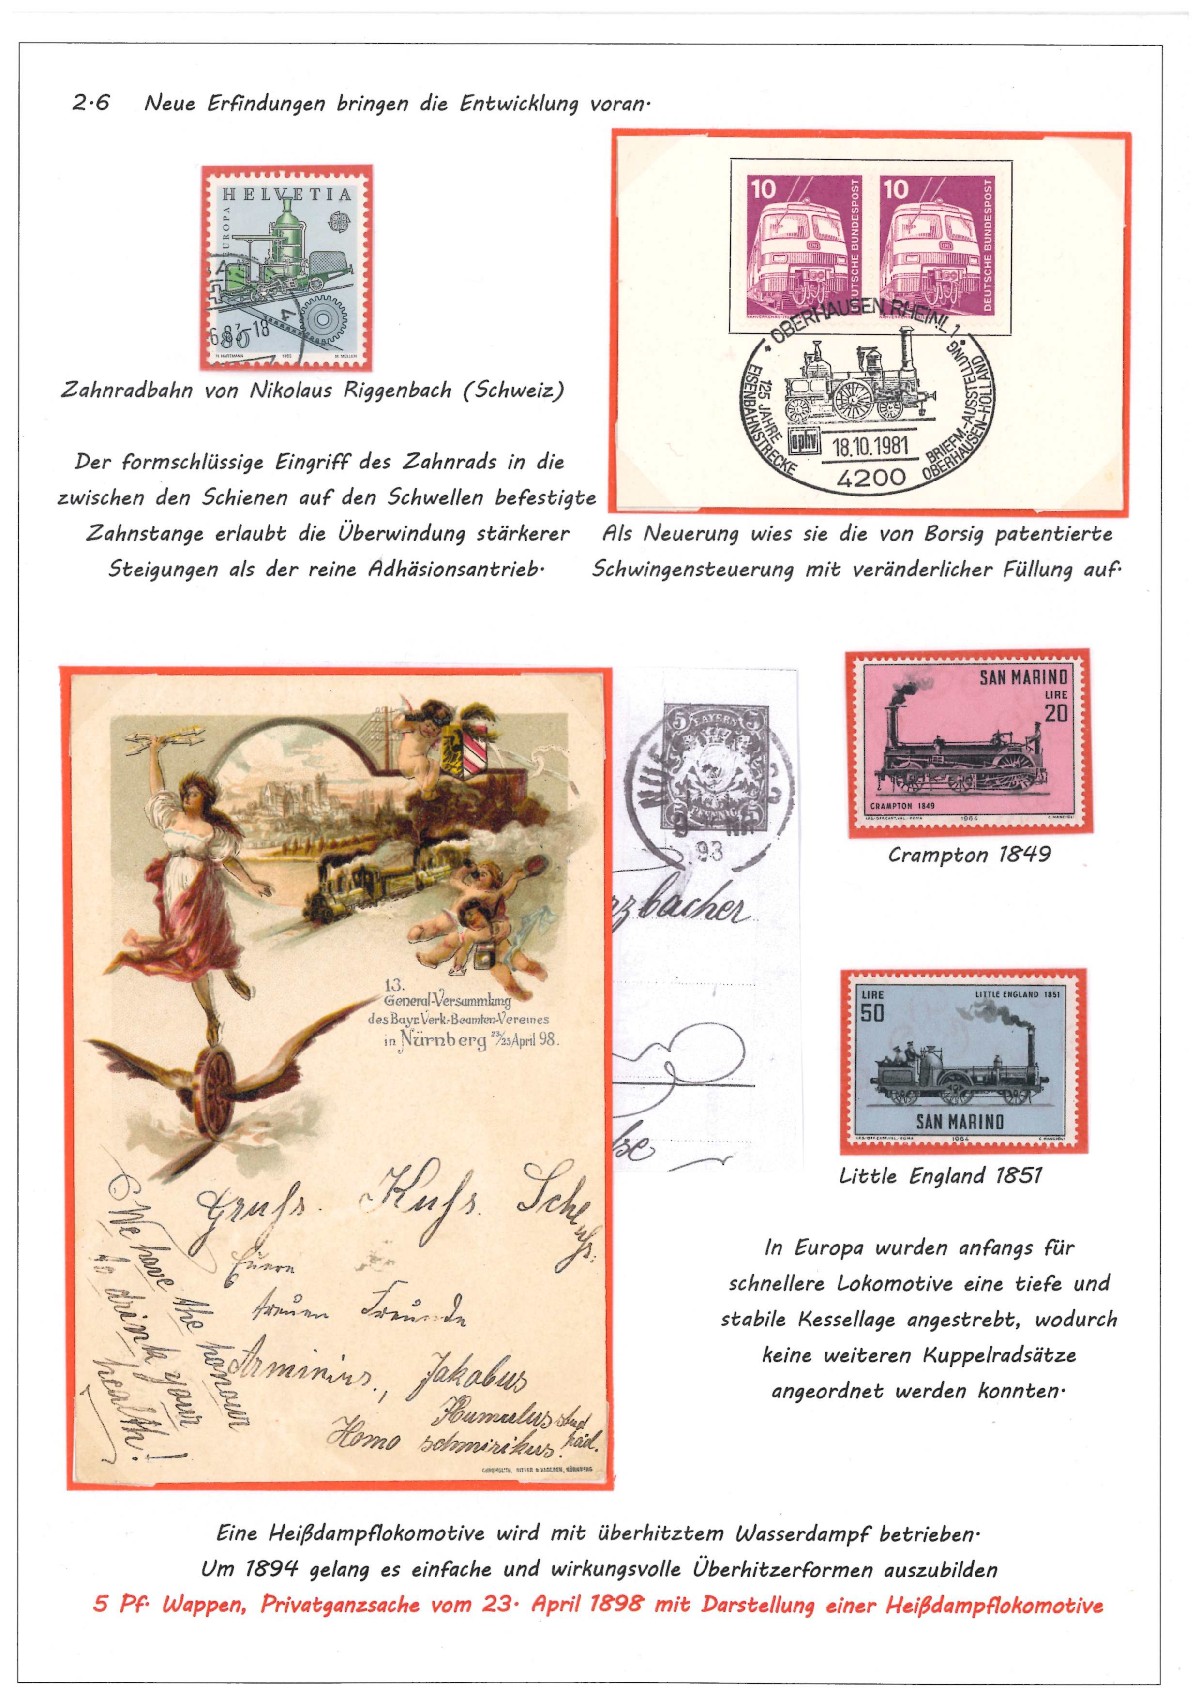 2.6 Neue Erfindungen bringen die Entwicklung voran.
HELVETIA
EUROPA
80
6.83-18
H. HARTMANN 1983 M. MÜLLER
Zahnradbahn von Nikolaus Riggenbach (Schweiz)
Der formschlüssige Eingriff des Zahnrads in die
zwischen den Schienen auf den Schwellen befestigte
Zahnstange erlaubt die Überwindung stärkerer
Steigungen als der reine Adhäsionsantrieb.
10
DEUTSCHE BUNDESPOST
10
DEUTSCHE BUNDESPOST
OBERHAUSEN, RHEINL 1
125 JAHRE
EISENBAHNSTRECKE
BRIEFM.-AUSSTELLUNG
OBERHAUSEN-HOLLAND
18.10.1981
4200
Als Neuerung wies sie die von Borsig patentierte
Schwingensteuerung mit veränderlicher Füllung auf.
13.
General-Versammlung
des Bayr. Verk.-Beamten-Vereines
in Nürnberg 23/25 April 98.
Gruß. Kuß. Schluß.
Euere
treuen Freunde
Arminius, Jakobus
Humulus stud. päd.
Homo schmirikus.
We have the honour
to drink your
health!
5 BAYERN 5
PFENNIG
93
SAN MARINO
LIRE
20
CRAMPTON 1849
1964
Crampton 1849
LIRE
50
LITTLE ENGLAND 1851
SAN MARINO
1964
Little England 1851
In Europa wurden anfangs für
schnellere Lokomotive eine tiefe und
stabile Kessellage angestrebt, wodurch
keine weiteren Kuppelradsätze
angeordnet werden konnten.
Eine Heißdampflokomotive wird mit überhitztem Wasserdampf betrieben.
Um 1894 gelang es einfache und wirkungsvolle Überhitzerformen auszubilden
5 Pf. Wappen, Privatganzsache vom 23. April 1898 mit Darstellung einer Heißdampflokomotive